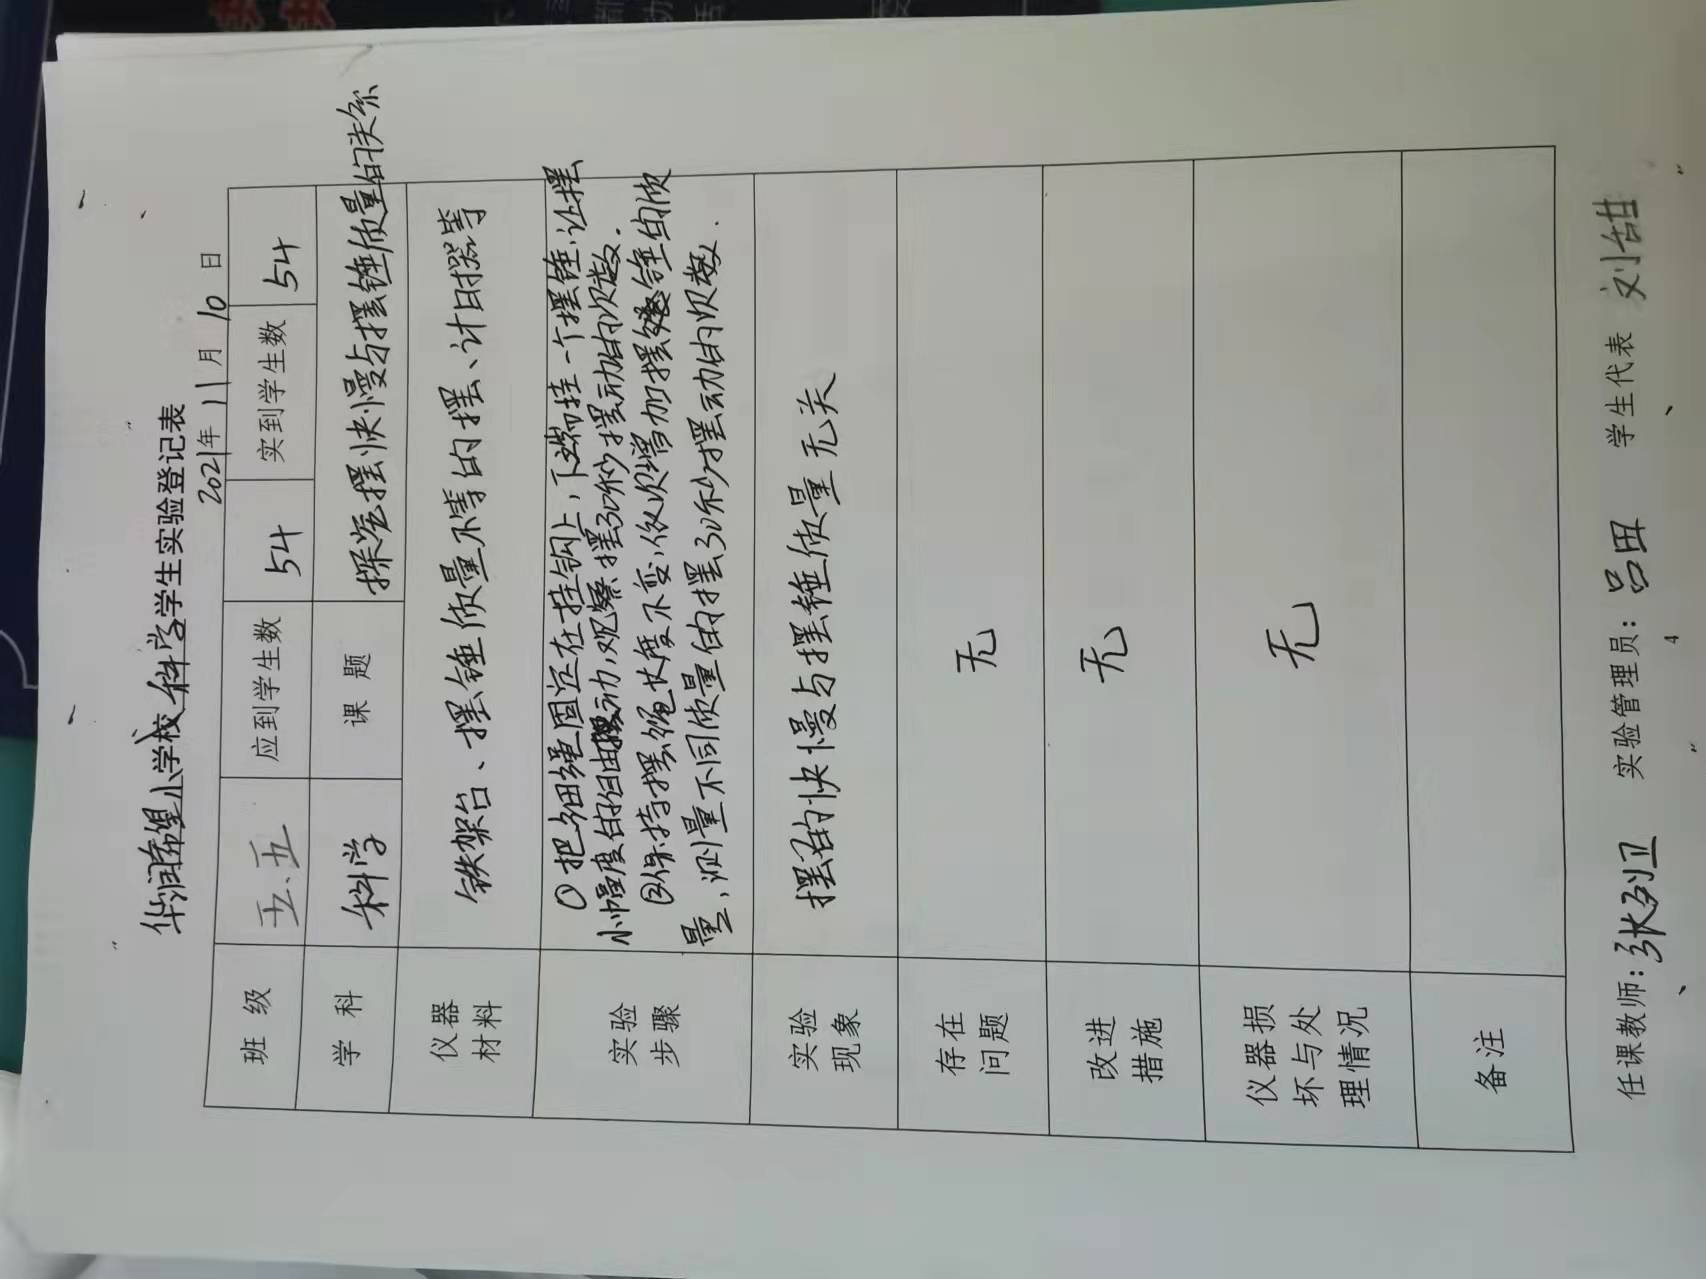 华润希望小学校科学学生实验登记表
2021年11月10日
班 级 五.五 应到学生数 54 实到学生数 54
学 科 科学 课 题 探究摆快慢与摆锤质量的关系
仪器
材料
铁架台、摆锤质量不等的摆、计时器等
实验
步骤
①把细绳固定在挂钩上,下端挂一个摆锤,让摆
小幅度的自由摆动,观察摆30秒摆动的次数.
②保持摆绳长度不变,依次增加摆锤的质
量,测量不同质量的摆30秒摆动的次数.
实验
现象
摆的快慢与摆锤质量无关
存在
问题
无
改进
措施
无
仪器损
坏与处
理情况
无
备注
任课教师:张列卫 实验管理员:吕田 学生代表 刘甜
4